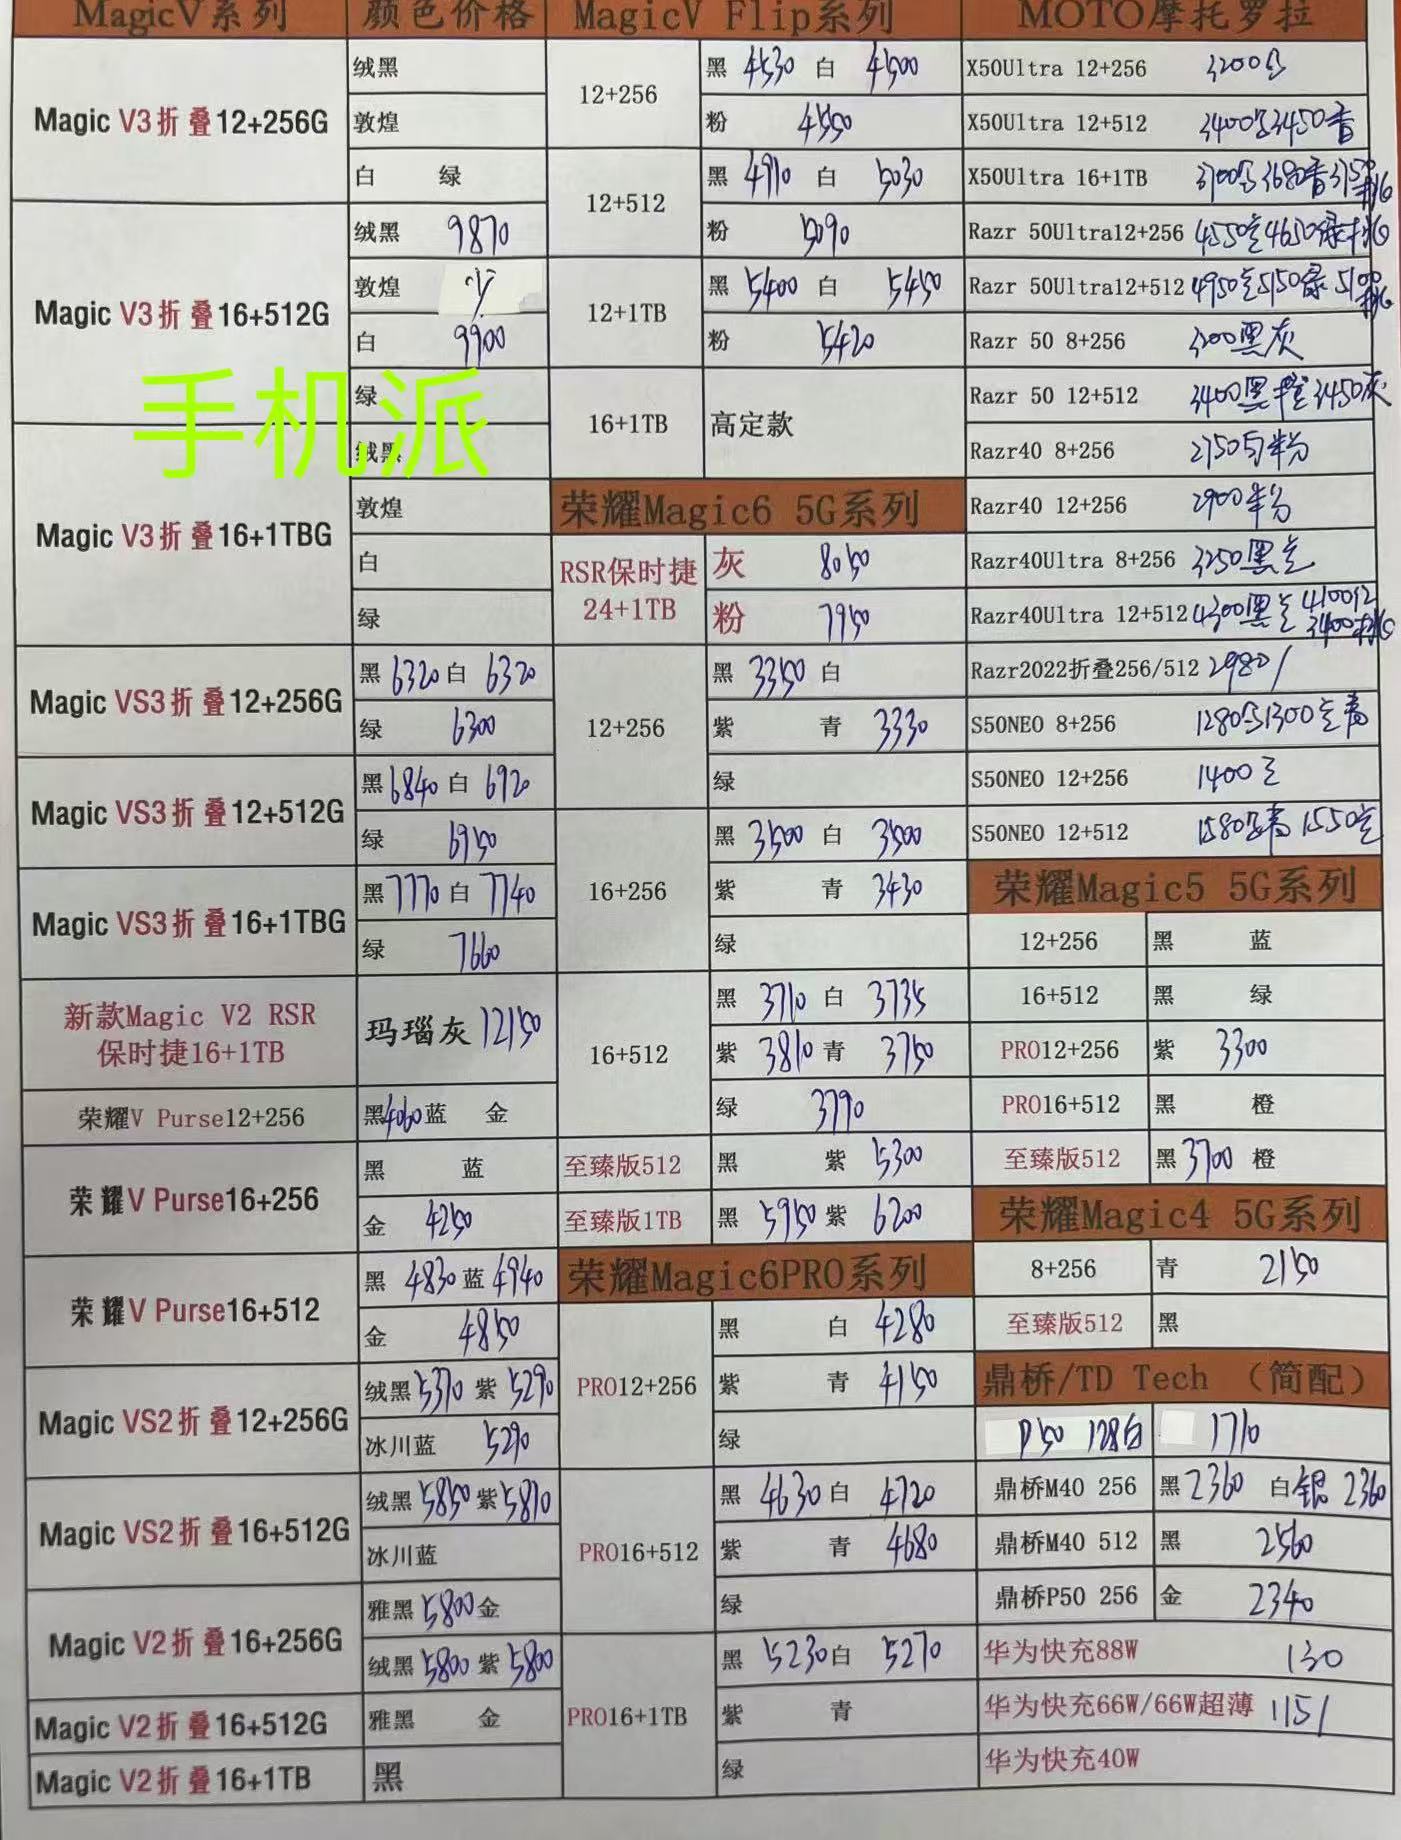 MagicV系列 颜色价格
Magic V3折叠12+256G 绒黑
敦煌
白 绿
Magic V3折叠16+512G 绒黑 9870
敦煌
白 9900
绿
Magic V3折叠16+1TBG 绒黑
敦煌
白
绿
Magic VS3折叠12+256G 黑 6320 白 6320
绿 6300
Magic VS3折叠12+512G 黑 6840 白 6920
绿 6950
Magic VS3折叠16+1TBG 黑 7770 白 7740
绿 7660
新款Magic V2 RSR
保时捷16+1TB 玛瑙灰 12150
荣耀V Purse12+256 黑 4060 蓝 金
荣耀V Purse16+256 黑 蓝
金 4250
荣耀V Purse16+512 黑 4830 蓝 4940
金 4850
Magic VS2折叠12+256G 绒黑 5370 紫 5290
冰川蓝 5290
Magic VS2折叠16+512G 绒黑 5850 紫 5810
冰川蓝
Magic V2折叠16+256G 雅黑 5800 金
绒黑 5800 紫 5800
Magic V2折叠16+512G 雅黑 金
Magic V2折叠16+1TB 黑
手机派
MagicV Flip系列
12+256 黑 4530 白 4500
粉 4550
12+512 黑 4910 白 5030
粉 5090
12+1TB 黑 5400 白 5450
粉 5420
16+1TB 高定款
荣耀Magic6 5G系列
RSR保时捷
24+1TB 灰 8050
粉 7950
12+256 黑 3350 白
紫 青 3330
绿
16+256 黑 3500 白 3500
紫 青 3430
绿
16+512 黑 3710 白 3735
紫 3810 青 3750
绿 3790
至臻版512 黑 紫 5300
至臻版1TB 黑 5950 紫 6200
荣耀Magic6PRO系列
PRO12+256 黑 白 4280
紫 青 4150
绿
PRO16+512 黑 4630 白 4720
紫 青 4680
绿
PRO16+1TB 黑 5230 白 5270
紫 青
绿
MOTO摩托罗拉
X50Ultra 12+256 3200
X50Ultra 12+512 3400 3450
X50Ultra 16+1TB 3700 3680
Razr 50Ultra12+256 4550 4650绿
Razr 50Ultra12+512 4950 5150绿 5100
Razr 50 8+256 3200黑灰
Razr 50 12+512 3400黑 3450灰
Razr40 8+256 2750 粉
Razr40 12+256 2900粉
Razr40Ultra 8+256 3250黑
Razr40Ultra 12+512 4300黑 4100 3400
Razr2022折叠256/512 2980/
S50NEO 8+256 1280 1300
S50NEO 12+256 1400
S50NEO 12+512 1580 1550
荣耀Magic5 5G系列
12+256 黑 蓝
16+512 黑 绿
PRO12+256 紫 3300
PRO16+512 黑 橙
至臻版512 黑 3700 橙
荣耀Magic4 5G系列
8+256 青 2150
至臻版512 黑
鼎桥/TD Tech （简配）
P50 128白 1710
鼎桥M40 256 黑 2360 白 银 2360
鼎桥M40 512 黑 2560
鼎桥P50 256 金 2340
华为快充88W 130
华为快充66W/66W超薄 115/
华为快充40W